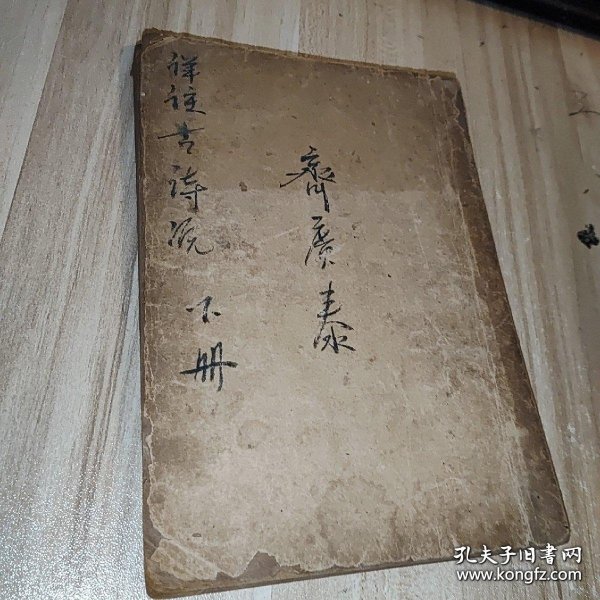 詳註古詩源 下册
齊廣泰
孔夫子旧書网
www.kongfz.com